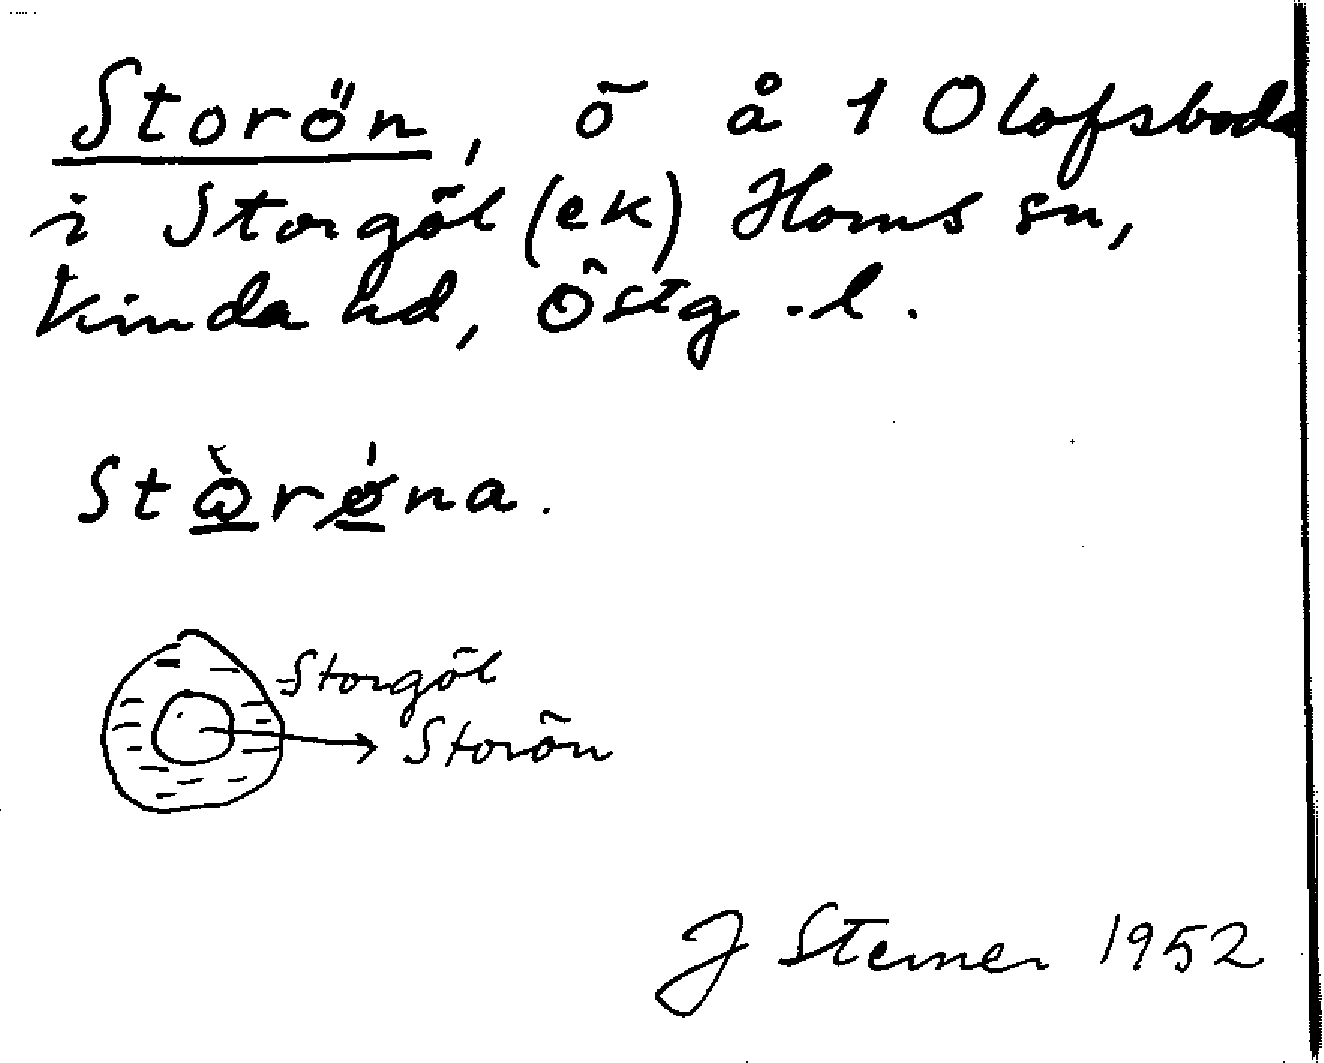 Storön, ö å 1 Olofsboda
i Storgöl (ek) Horns sn,
Kinda hd, Östg.l.
Stòrǿna.
Storgöl
Storön
J Sterner 1952